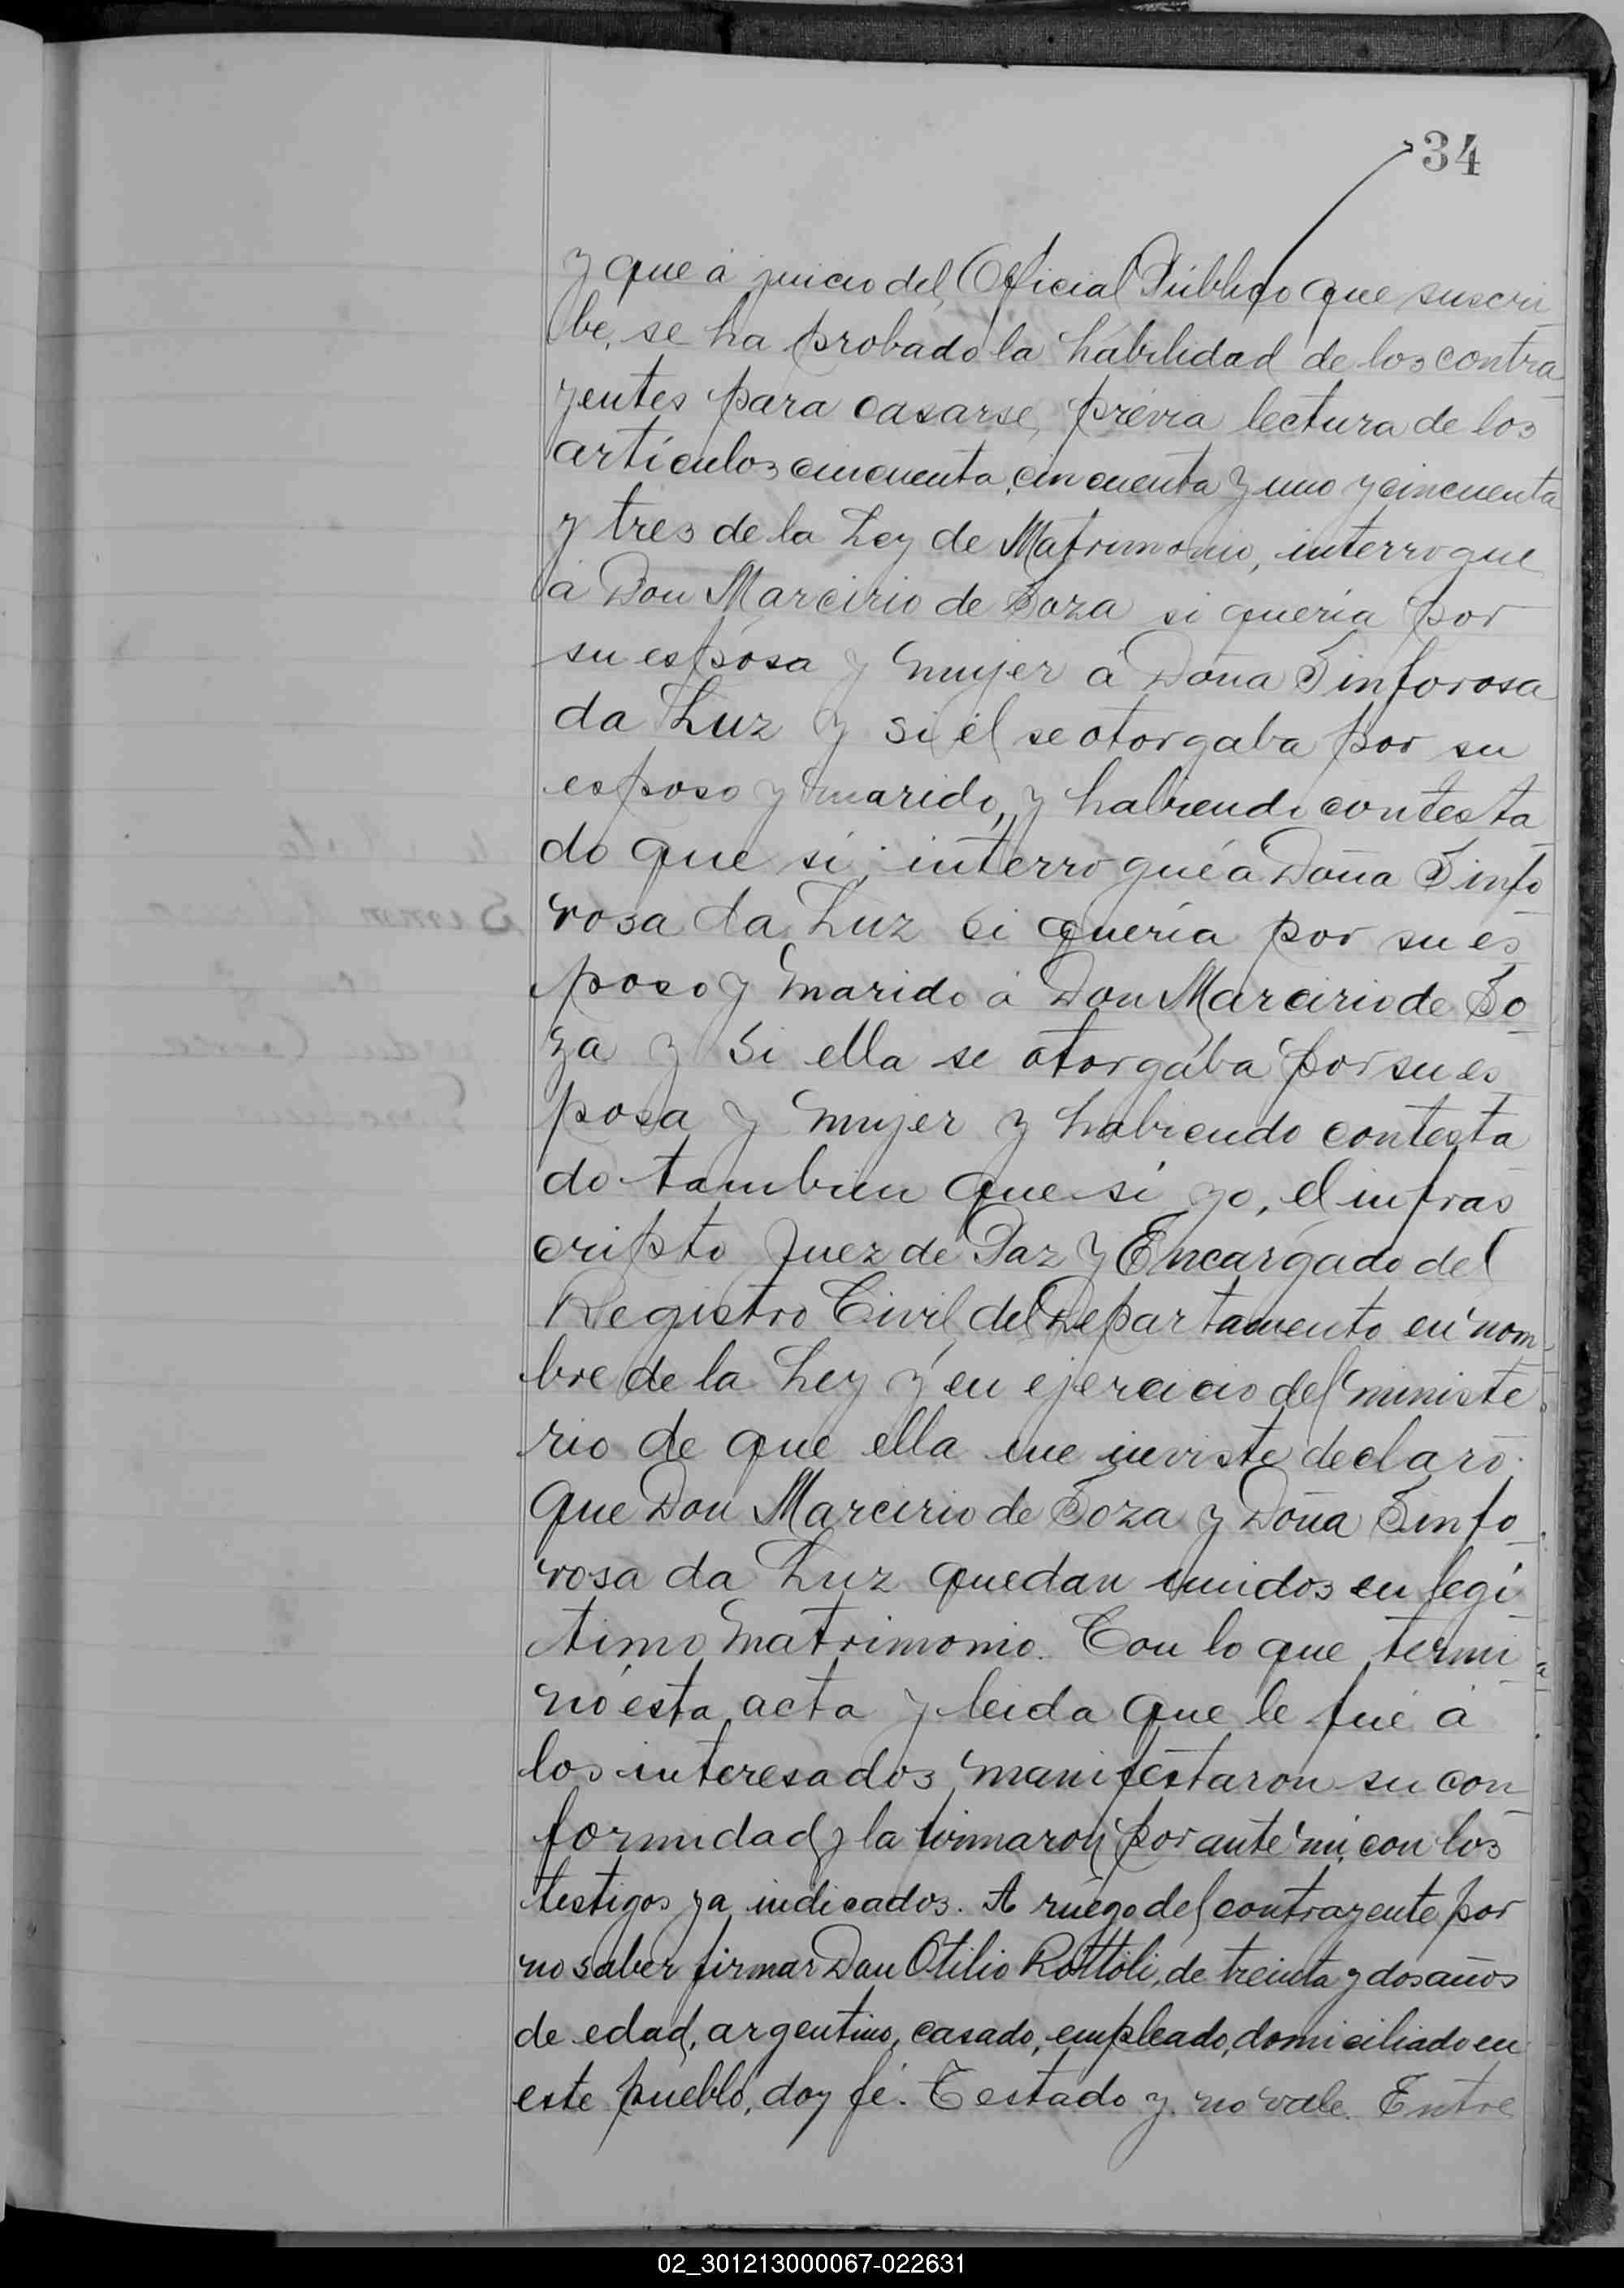 34
y que á juicio del Oficial Público que suscri
be, se ha probado la habilidad de los contra
yentes para casarse, prévia lectura de los
artículos cincuenta, cincuenta y uno y cincuenta
y tres de la Ley de Matrimonio, interrogue
á Don Marcirio de Soza si quería por
su esposa y mujer á Doña Sinforosa
da Luz y si él se otorgaba por su
esposo y marido, y habiendo contesta
do que sí; interrogué á Doña Sinfo
rosa da Luz si quería por su es
poso y marido á Don Marcirio de So
za y si ella se otorgaba por su es
posa y mujer y habiendo contesta
do tambien que sí yo, el infras
cripto Juez de Paz y Encargado del
Registro Civil del Departamento en nom
bre de la Ley y en ejercicio del ministe
rio de que ella me inviste declaro:
que Don Marcirio de Soza y Doña Sinfo
rosa da Luz quedan unidos en legí
timo matrimonio. Con lo que termi
nó esta acta y leida que le fué á
los interesados manifestaron su con
formidad y la firmaron por ante mi, con los
testigos ya indicados. A ruego del contrayente por
no saber firmar Don Otilio Rottoli, de treinta y dos años
de edad, argentino, casado, empleado, domiciliado en
este pueblo, doy fé. Testado y. no vale. Entre
02_301213000067-022631